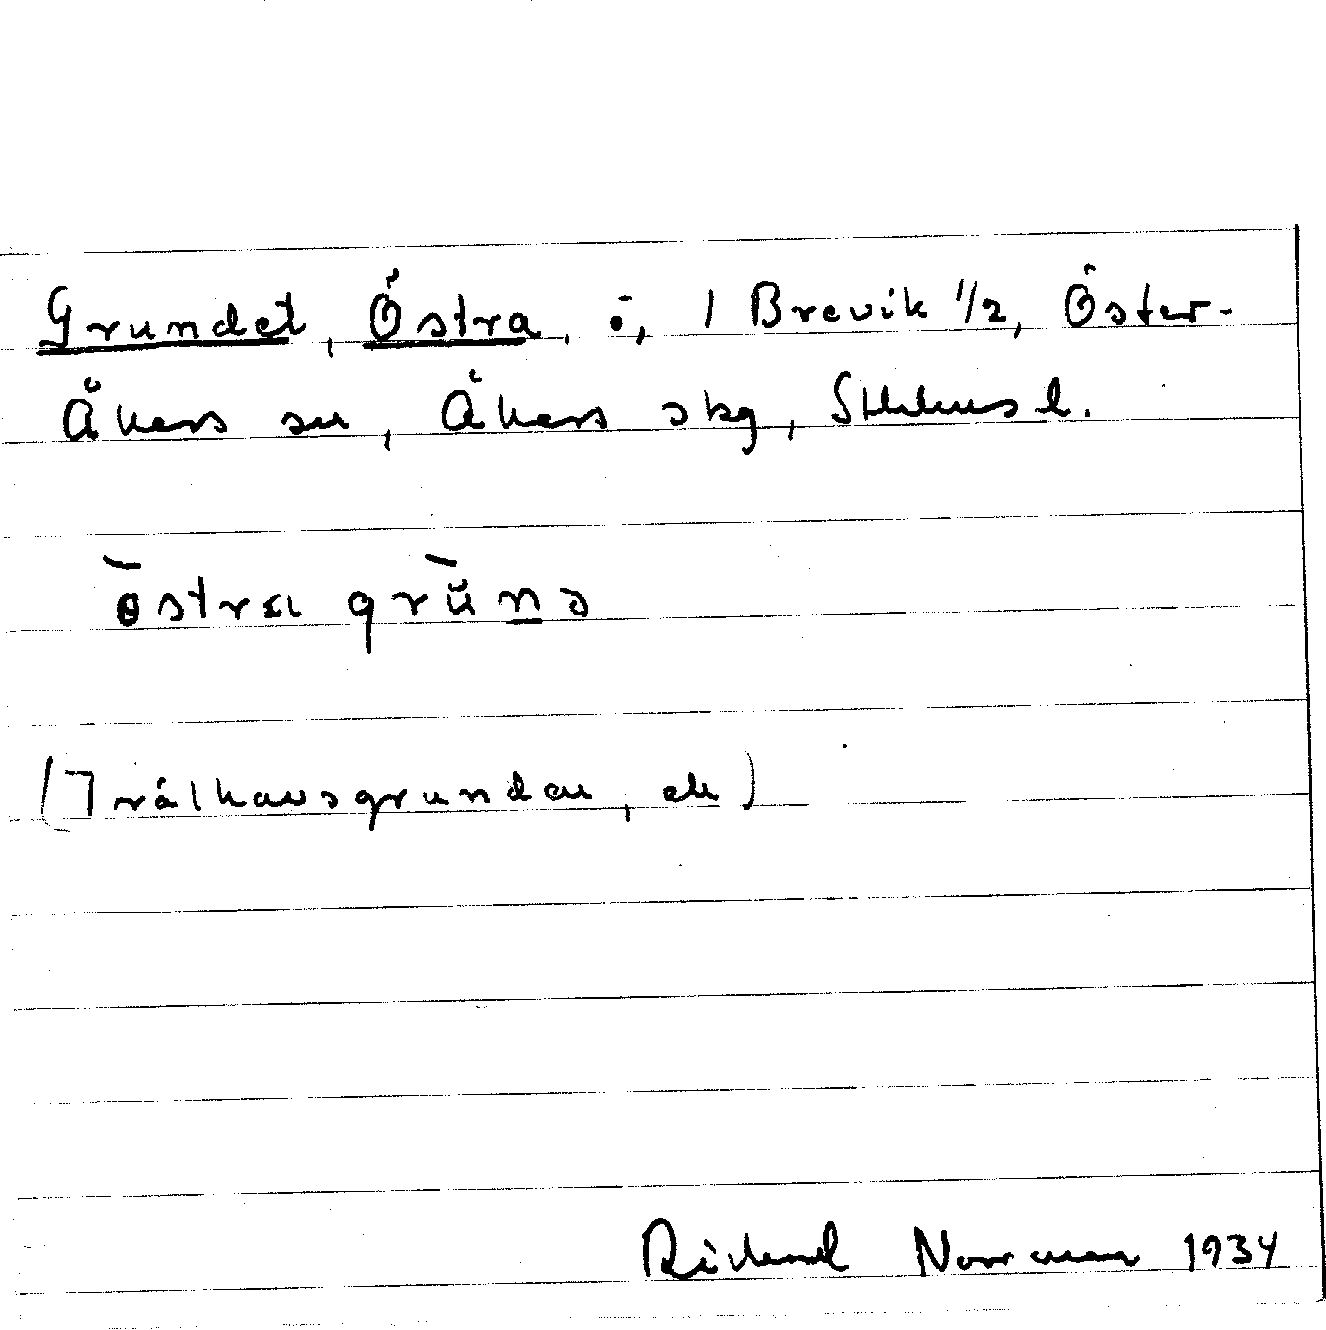 Grundet, Östra, ö, / Brevik 1/2, Öster-
Åkers sn, Åkers skg, Sthlms l.
östra grŭnə
(Trälhavsgrunden, ek)
Rickard Norrman 1934